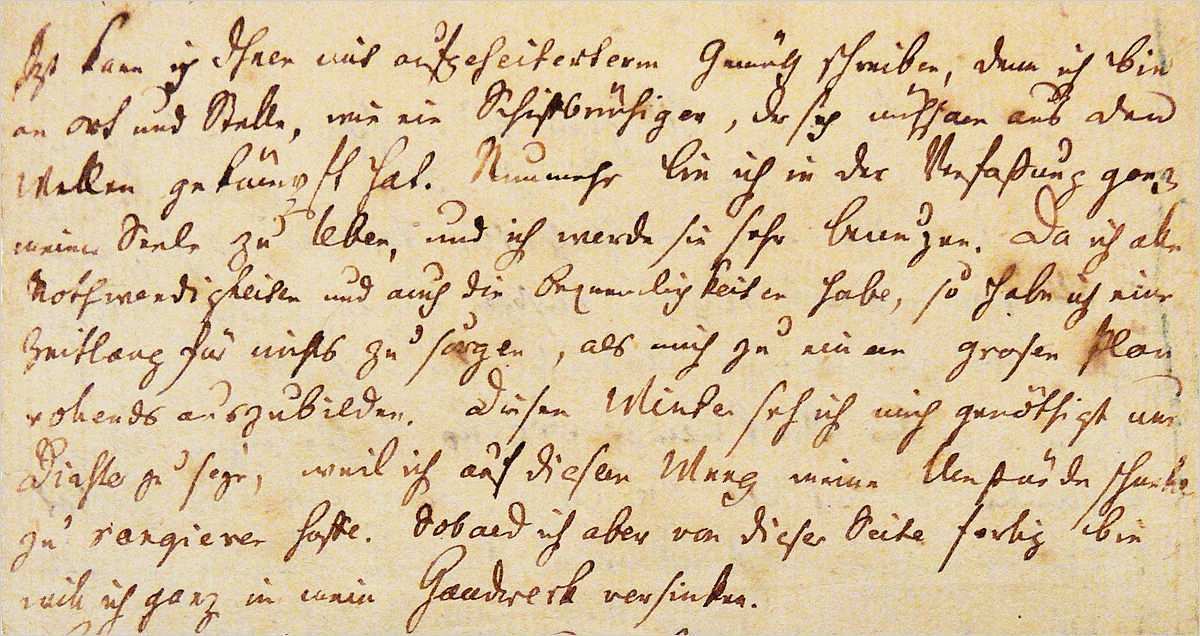 Jetzt kann ich Ihnen mit aufgeheitertem Gemüth schreiben, denn ich bin
an Ort und Stelle, wie ein Schiffbrüchiger, der sich mühsam aus den
Wellen gekämpft hat. Nunmehr bin ich in der Verfaßung ganz
meiner Seele zu leben, und ich werde sie sehr benuzen. Da ich alle
Nothwendigkeiten und auch die Bequemlichkeiten habe, so habe ich eine
Zeitlang für nichts zu sorgen, als mich zu einem grosen Plan
vollends auszubilden. Diesen Winter seh ich mich genöthigt nur
Dichter zu seyn, weil ich auf diesem Weeg meine Umstände schneller
zu rangieren hoffe. Sobald ich aber von dieser Seite fertig bin
will ich ganz in mein Handwerk versinken.